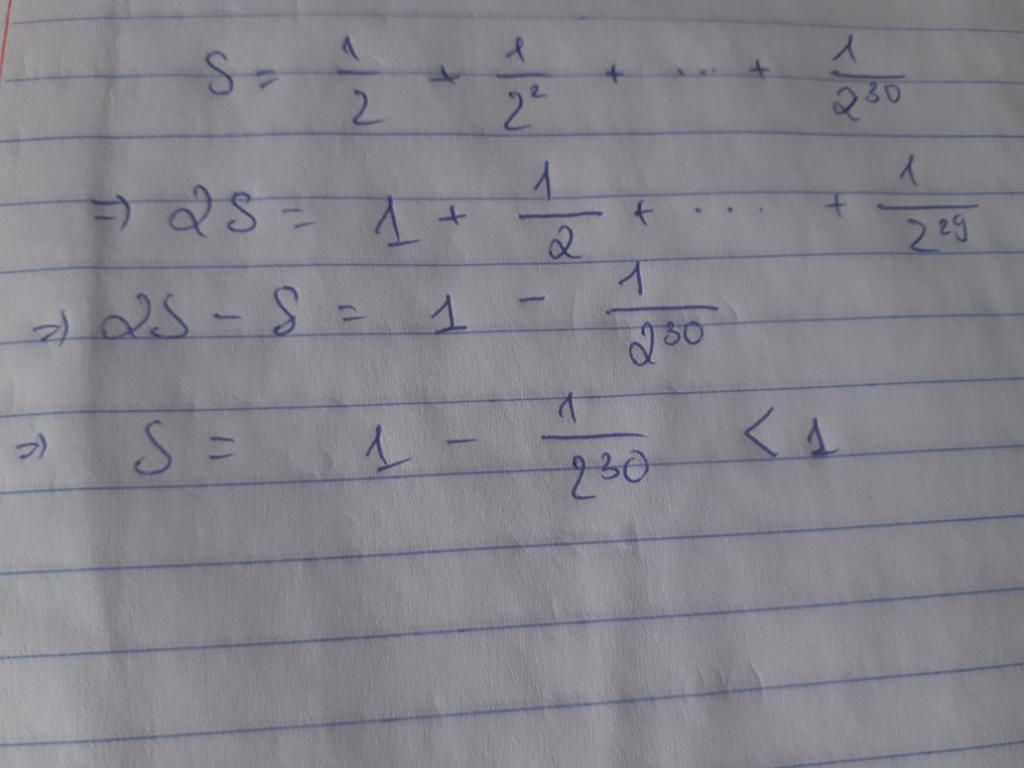 S = 1/2 + 1/2² + ... + 1/2³⁰
⇒ 2S = 1 + 1/2 + ... + 1/2²⁹
⇒ 2S - S = 1 - 1/2³⁰
⇒ S = 1 - 1/2³⁰ < 1